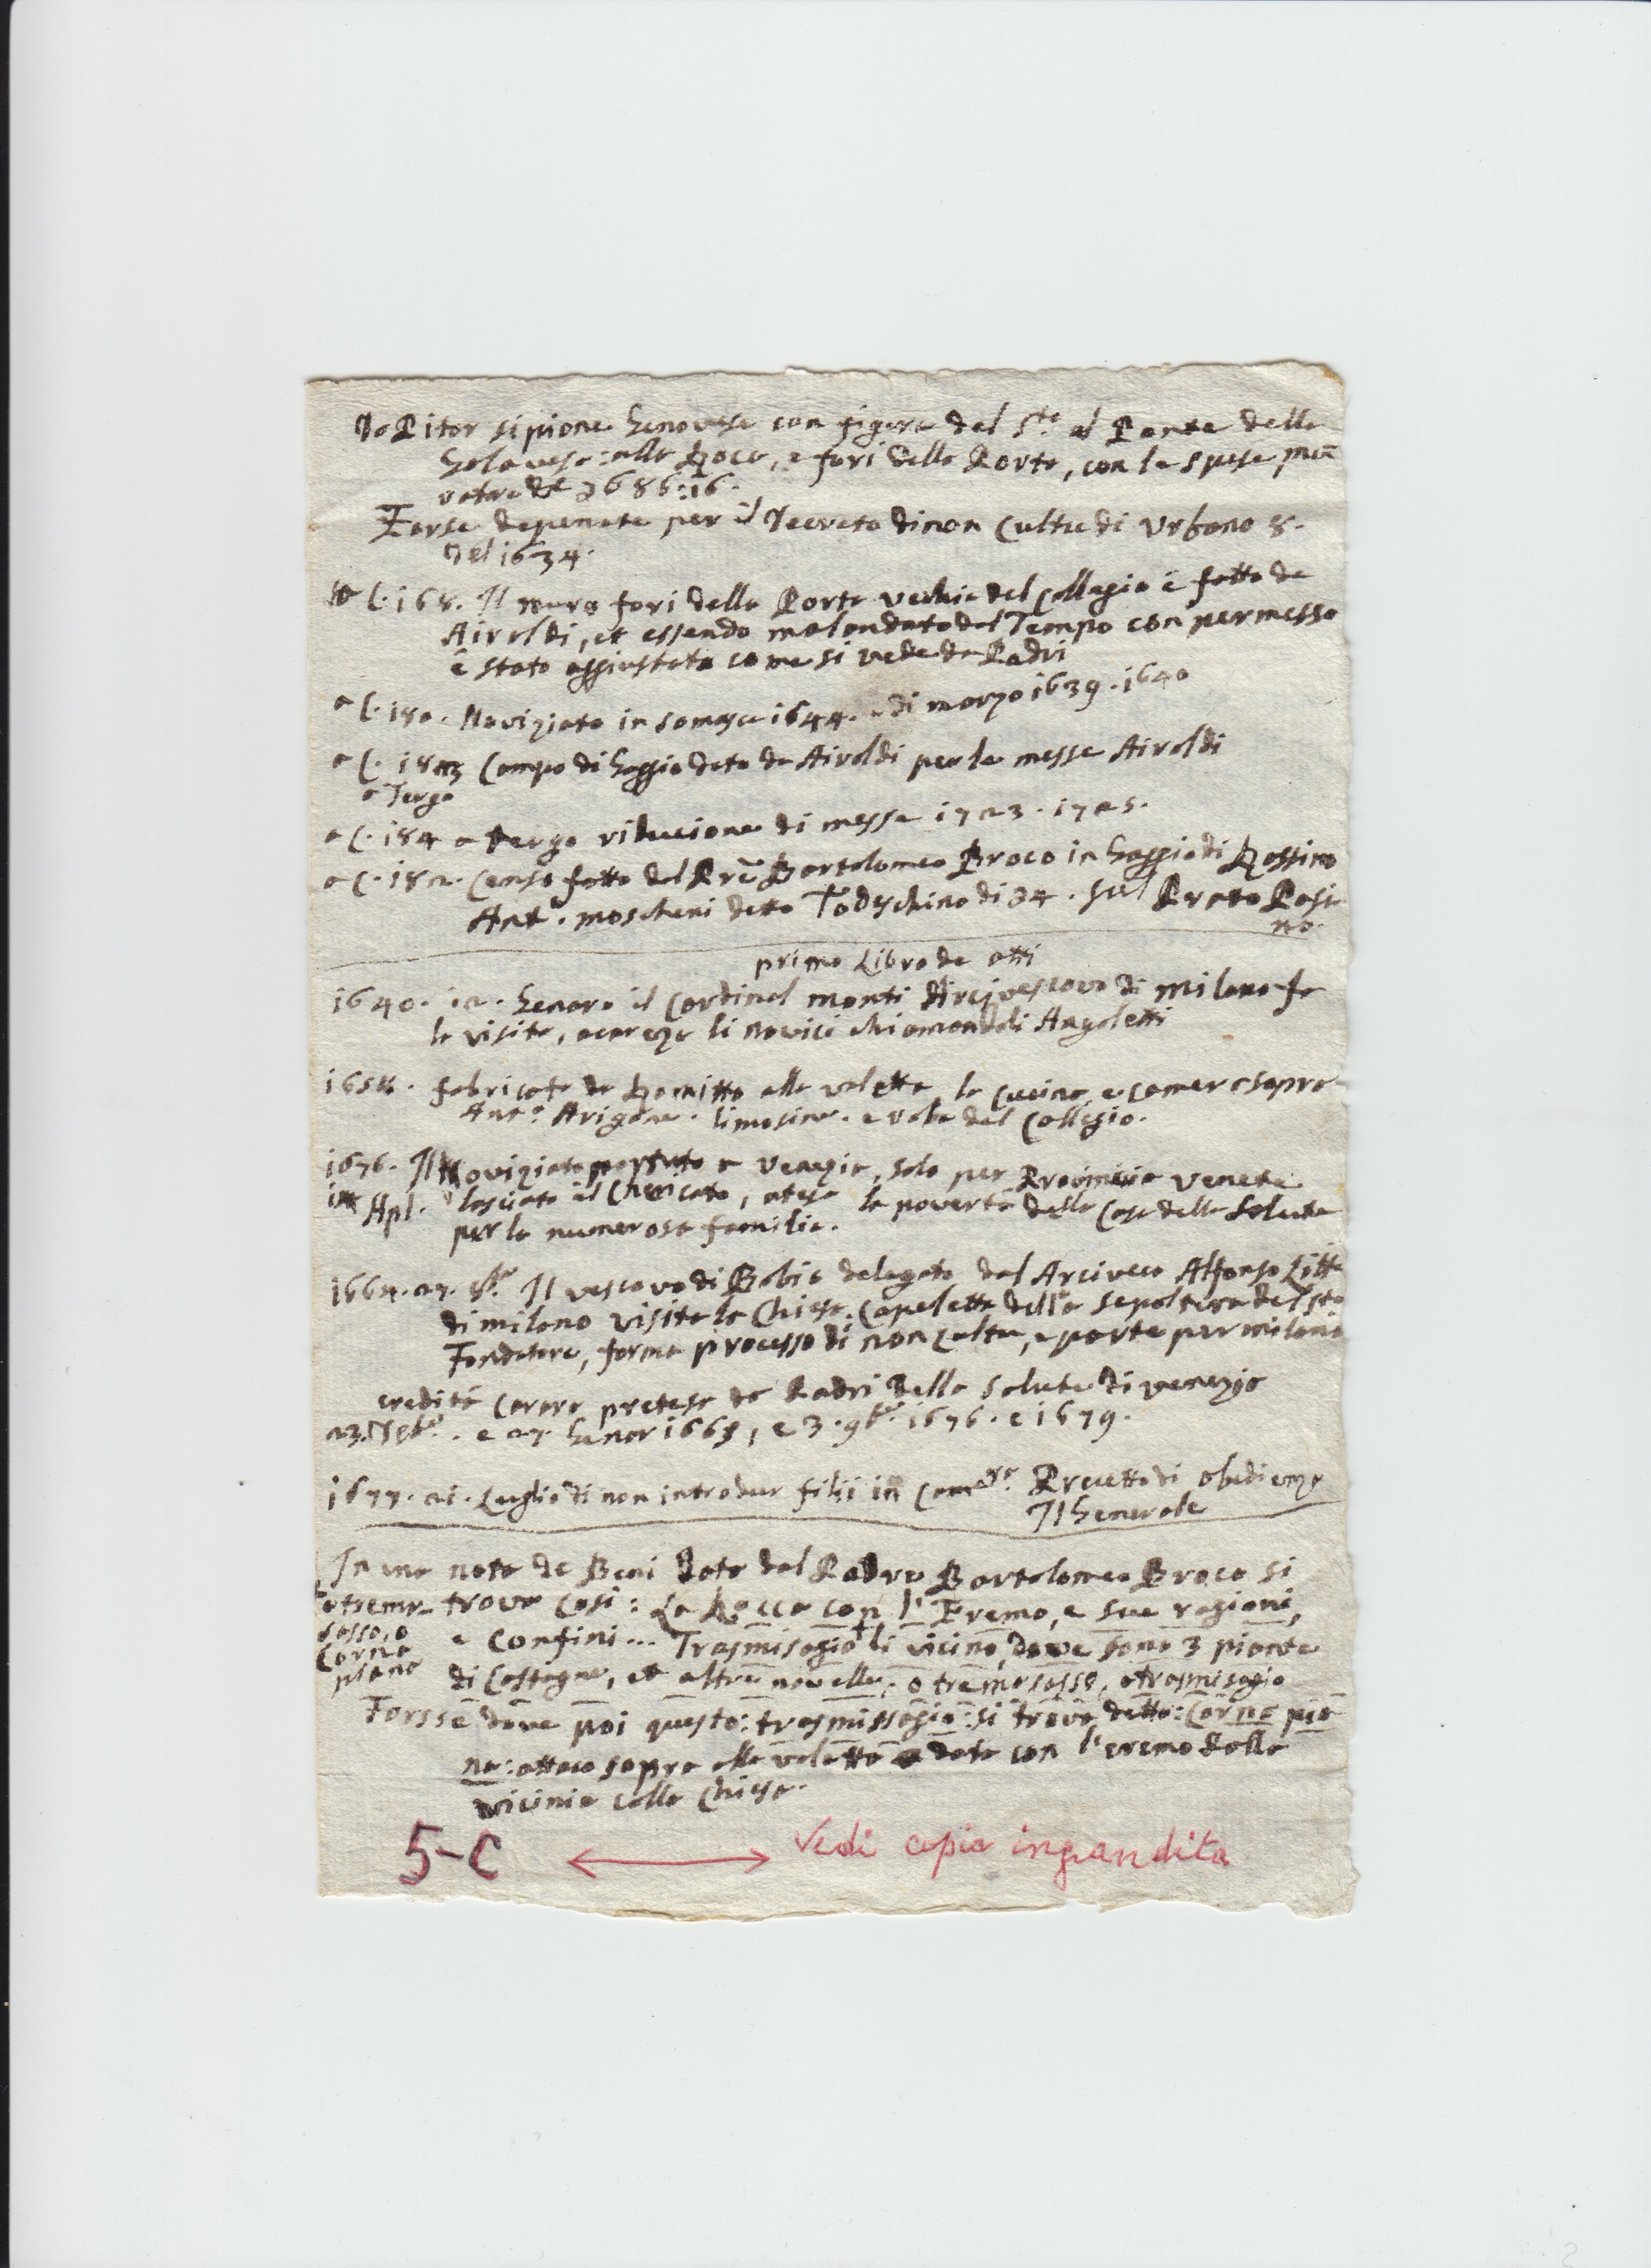 Da Pitor sipione Genovese con figura del S.to al Ponte della
Galavesa: alla Roca, e fori della Porta, con la spesa
1686:16.
Forse depenate per il decreto di non Cultu di Urbano 8.
del 1634.
a C. 168. Il muro fori della Porta vechia del Collegio è fatto da
Airoldi, et essendo malandato dal Tempo con permesso
è stato aggiustato come si vede da Padri
a C. 180. Noviziato in Somasca 1644. e di marzo 1639. 1640
a C. 183 Campo di Gaggio dato da Airoldi per le messe Airoldi
a Tergo
a C. 184 a tergo riducione di messe 1723. 1725.
a C. 182. Censo fatto dal Pre Bartolomeo Broco in Gaggio di Rossino
Ant.o moscheni detto Todeschino di 34. sul Prato Pasi-
no.
primo Libro de atti
1640. 12. Genaro il Cardinal monti Arcivescovo di milano fa
la visita, acareza li novici chiamandoli Angeletti
1658. fabricata da Romitta alla valetta, la cucina, e camera sopra
Ant.o Arigone. limosine. e roba del Collegio.
1676. Il Noviziato portato a Venezia, solo per Provincia veneta
in Apl. lasciato il Chericato, atesa la povertà della Casa della Salute
per la numerosa familia.
1664. 27. 8bre Il vescovo di Bobio delegato dal Arcivesco Alfonso Litta
di milano visita la Chiesa. Capeletta della sepoltura del sto
Fondatore, forma processo di non Cultu, e parte per milano
eredità Carara pretesa da Padri della Salute di venezia
23. . e 27. Genar 1669, e 3. 9bre 1676. e 1679.
1677. 21. Luglio di non introdur filii in Precetto di obedienza
Il Generale
In una nota de Beni data dal Padre Bartolomeo Broco si
o tremo- trova Cosi: La Rocca con l'Eremo, e sue ragioni,
sasso, o e Confini... Trasmisagio li vicino, dove sono 3 piante
Corna di Castagne, et altre novelle, o tremasasso, o trasmisagio
piana
Forsse dove poi questo: trasmissagio: si trova detto: Corna pia-
na: attaco sopra alla valetta data con l'eremo dalla
vicinia colla Chiesa.
5-C ⟷ Vedi copia ingrandita